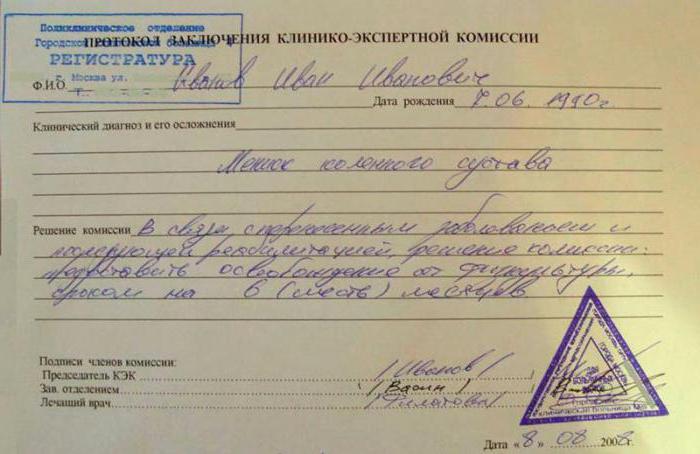 Поликлиническое отделение
Городской
РЕГИСТРАТУРА
г. Москва ул.
ПРОТОКОЛ ЗАКЛЮЧЕНИЯ КЛИНИКО-ЭКСПЕРТНОЙ КОМИССИИ
Ф.И.О. Иванов Иван Иванович
Дата рождения 7.06.1990г
Клинический диагноз и его осложнения
Мениск коленного сустава
Решение комиссии В связи с перенесенным заболеванием и
последующей реабилитацией, решение комиссии:
предоставить освобождение от физкультуры,
сроком на 6 (шесть) месяцев
Подписи членов комиссии:
Председатель КЭК /Иванов/
Зав. отделением (Васин)
Лечащий врач (Филатова)
ДЛЯ
БОЛЬНИЧНЫХ
Городская
клиническая больница
Дата «8» 08 2008г.